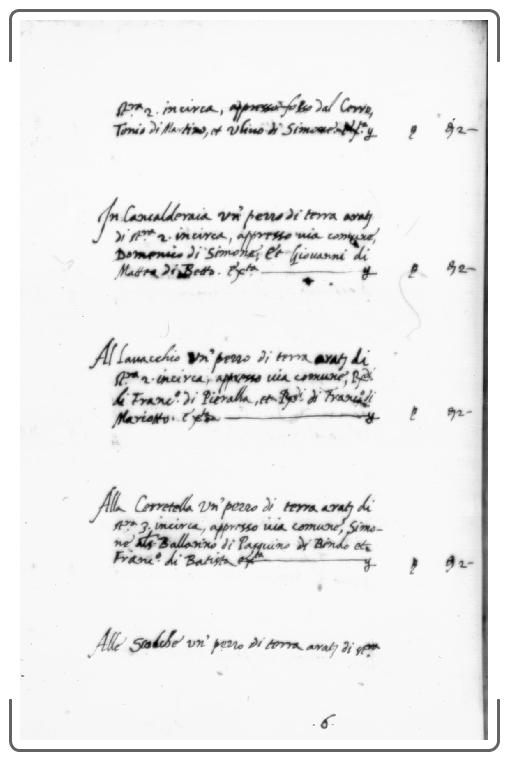 st.ra 2. incirca, appresso fosso dal Cerro,
Tonio di Martino, et Ulivo di Simone
In Cancalderaia un' pezzo di terra arat.
di st.ra 2. incirca, appresso via comune,
Domenico di Simone, et Giovanni di
Matteo di Betto. &c.ta
Al Lavacchio un' pezzo di terra arat. di
st.ra 2. incirca, appresso via comune,
di Franc.o di Pieralla, et di Franc.o di
Mariotto.
Alla Cerretella un' pezzo di terra arat. di
st.ra 3. incirca, appresso via comune, Simo-
ne Ballarino di Pasquino di Bindo et
Franc.o di Batista
Alle un' pezzo di terra arat. di st.ra
6.